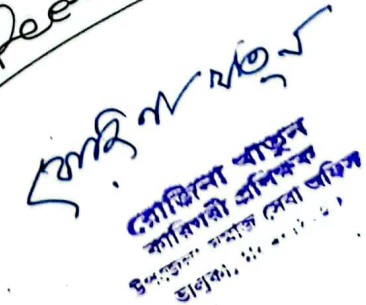 রোজিনা খাতুন
রোজিনা খাতুন
কারিগরী প্রশিক্ষক
উপজেলা সমাজ সেবা অফিস
ভালুকা,